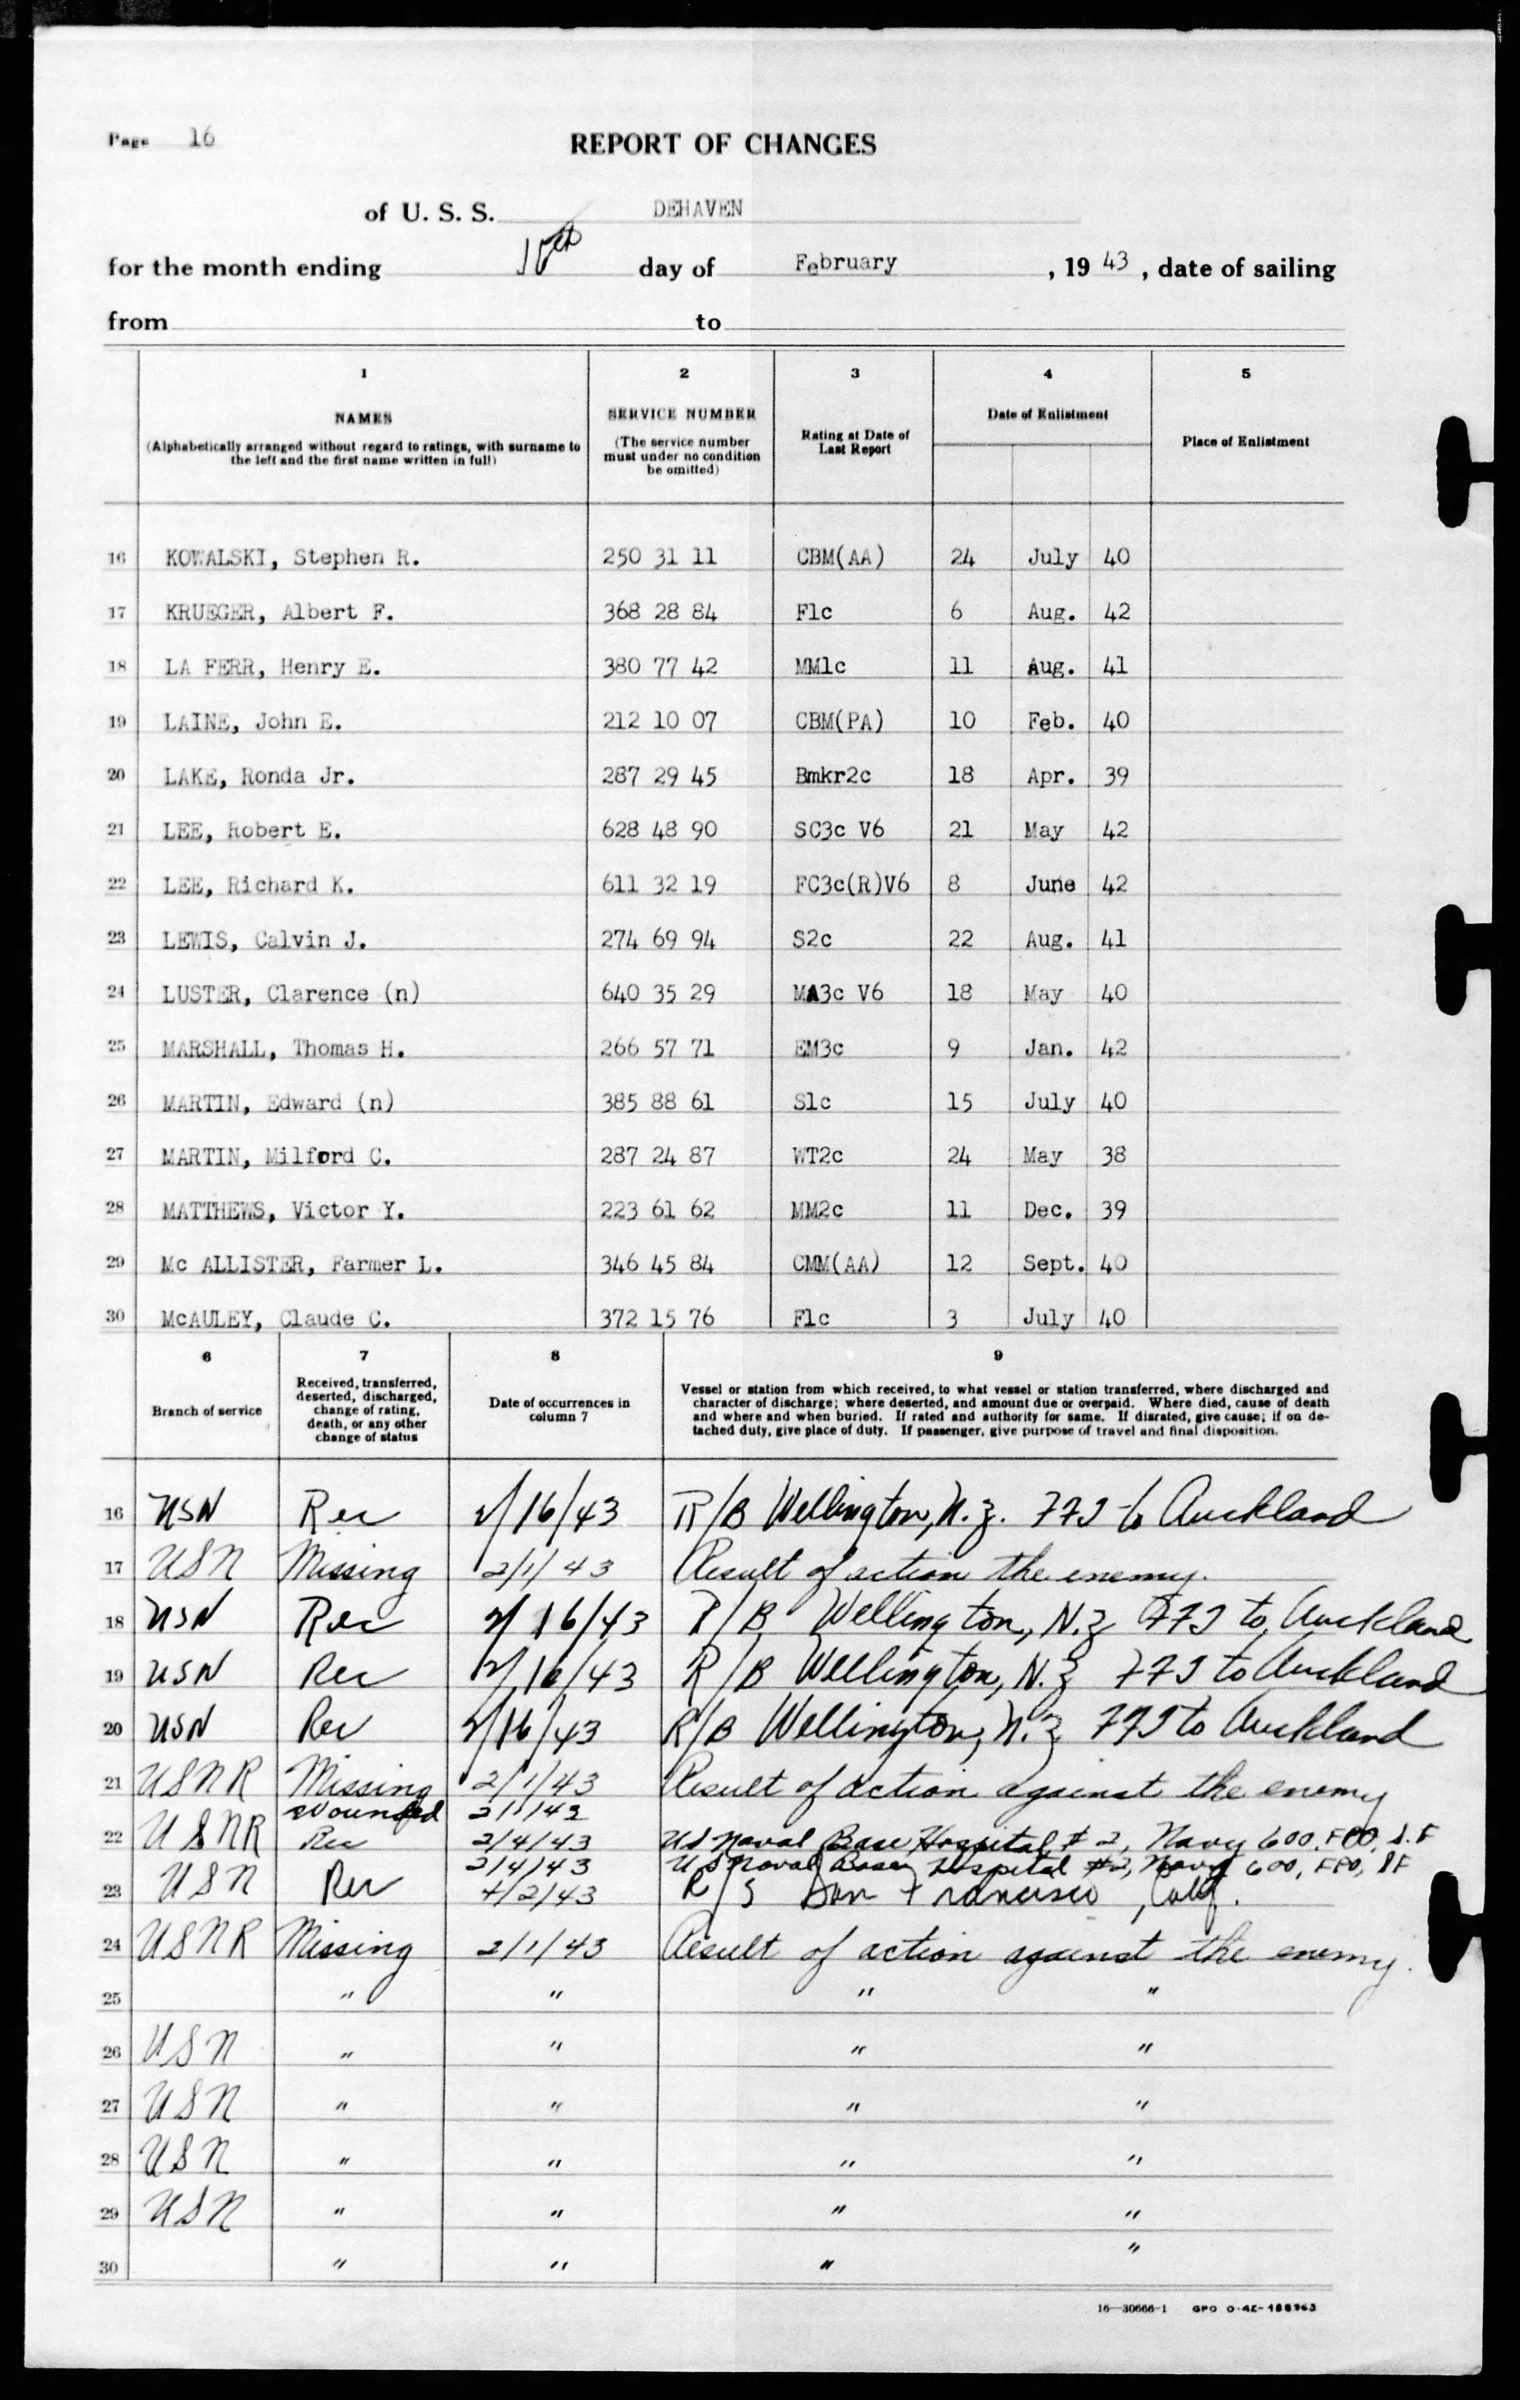 Page 16
REPORT OF CHANGES
of U. S. S. DEHAVEN
for the month ending day of February , 19 43 , date of sailing
from to
1 2 3 4 5
NAMES
(Alphabetically arranged without regard to ratings, with surname to the left and the first name written in full)
SERVICE NUMBER
(The service number must under no condition be omitted)
Rating at Date of Last Report
Date of Enlistment
Place of Enlistment
16 KOWALSKI, Stephen R. 250 31 11 CBM(AA) 24 July 40
17 KRUEGER, Albert F. 368 28 84 F1c 6 Aug. 42
18 LA FERR, Henry E. 380 77 42 MM1c 11 Aug. 41
19 LAINE, John E. 212 10 07 CBM(PA) 10 Feb. 40
20 LAKE, Ronda Jr. 287 29 45 Bmkr2c 18 Apr. 39
21 LEE, Robert E. 628 48 90 SC3c V6 21 May 42
22 LEE, Richard K. 611 32 19 FC3c(R)V6 8 June 42
23 LEWIS, Calvin J. 274 69 94 S2c 22 Aug. 41
24 LUSTER, Clarence (n) 640 35 29 MA3c V6 18 May 40
25 MARSHALL, Thomas H. 266 57 71 EM3c 9 Jan. 42
26 MARTIN, Edward (n) 385 88 61 S1c 15 July 40
27 MARTIN, Milford C. 287 24 87 WT2c 24 May 38
28 MATTHEWS, Victor Y. 223 61 62 MM2c 11 Dec. 39
29 Mc ALLISTER, Farmer L. 346 45 84 CMM(AA) 12 Sept. 40
30 McAULEY, Claude C. 372 15 76 F1c 3 July 40
6 7 8 9
Branch of service
Received, transferred, deserted, discharged, change of rating, death, or any other change of status
Date of occurrences in column 7
Vessel or station from which received, to what vessel or station transferred, where discharged and
character of discharge; where deserted, and amount due or overpaid. Where died, cause of death
and where and when buried. If rated and authority for same. If disrated, give cause; if on de-
tached duty, give place of duty. If passenger, give purpose of travel and final disposition.
16 USN Rec 2/16/43 R/B Wellington, N.Z. FFT to Auckland
17 USN Missing 2/1/43 Result of action the enemy.
18 USN Rec 2/16/43 R/B Wellington, N.Z FFT to Auckland
19 USN Rec 2/16/43 R/B Wellington, N.Z FFT to Auckland
20 USN Rec 2/16/43 R/B Wellington, N.Z FFT to Auckland
21 USNR Missing 2/1/43 Result of action against the enemy
Wounded 2/1/43
22 USNR Rec 2/4/43 US Naval Base Hospital #2, Navy 600, FPO, S.F
2/4/43 US Naval Base Hospital #2, Navy 600, FPO, SF
23 USN Rec 4/2/43 R/S San Francisco, Calif.
24 USNR Missing 2/1/43 Result of action against the enemy.
25 " " " "
26 USN " " " "
27 USN " " " "
28 USN " " " "
29 USN " " " "
30 " " " "
16—30666-1 GPO